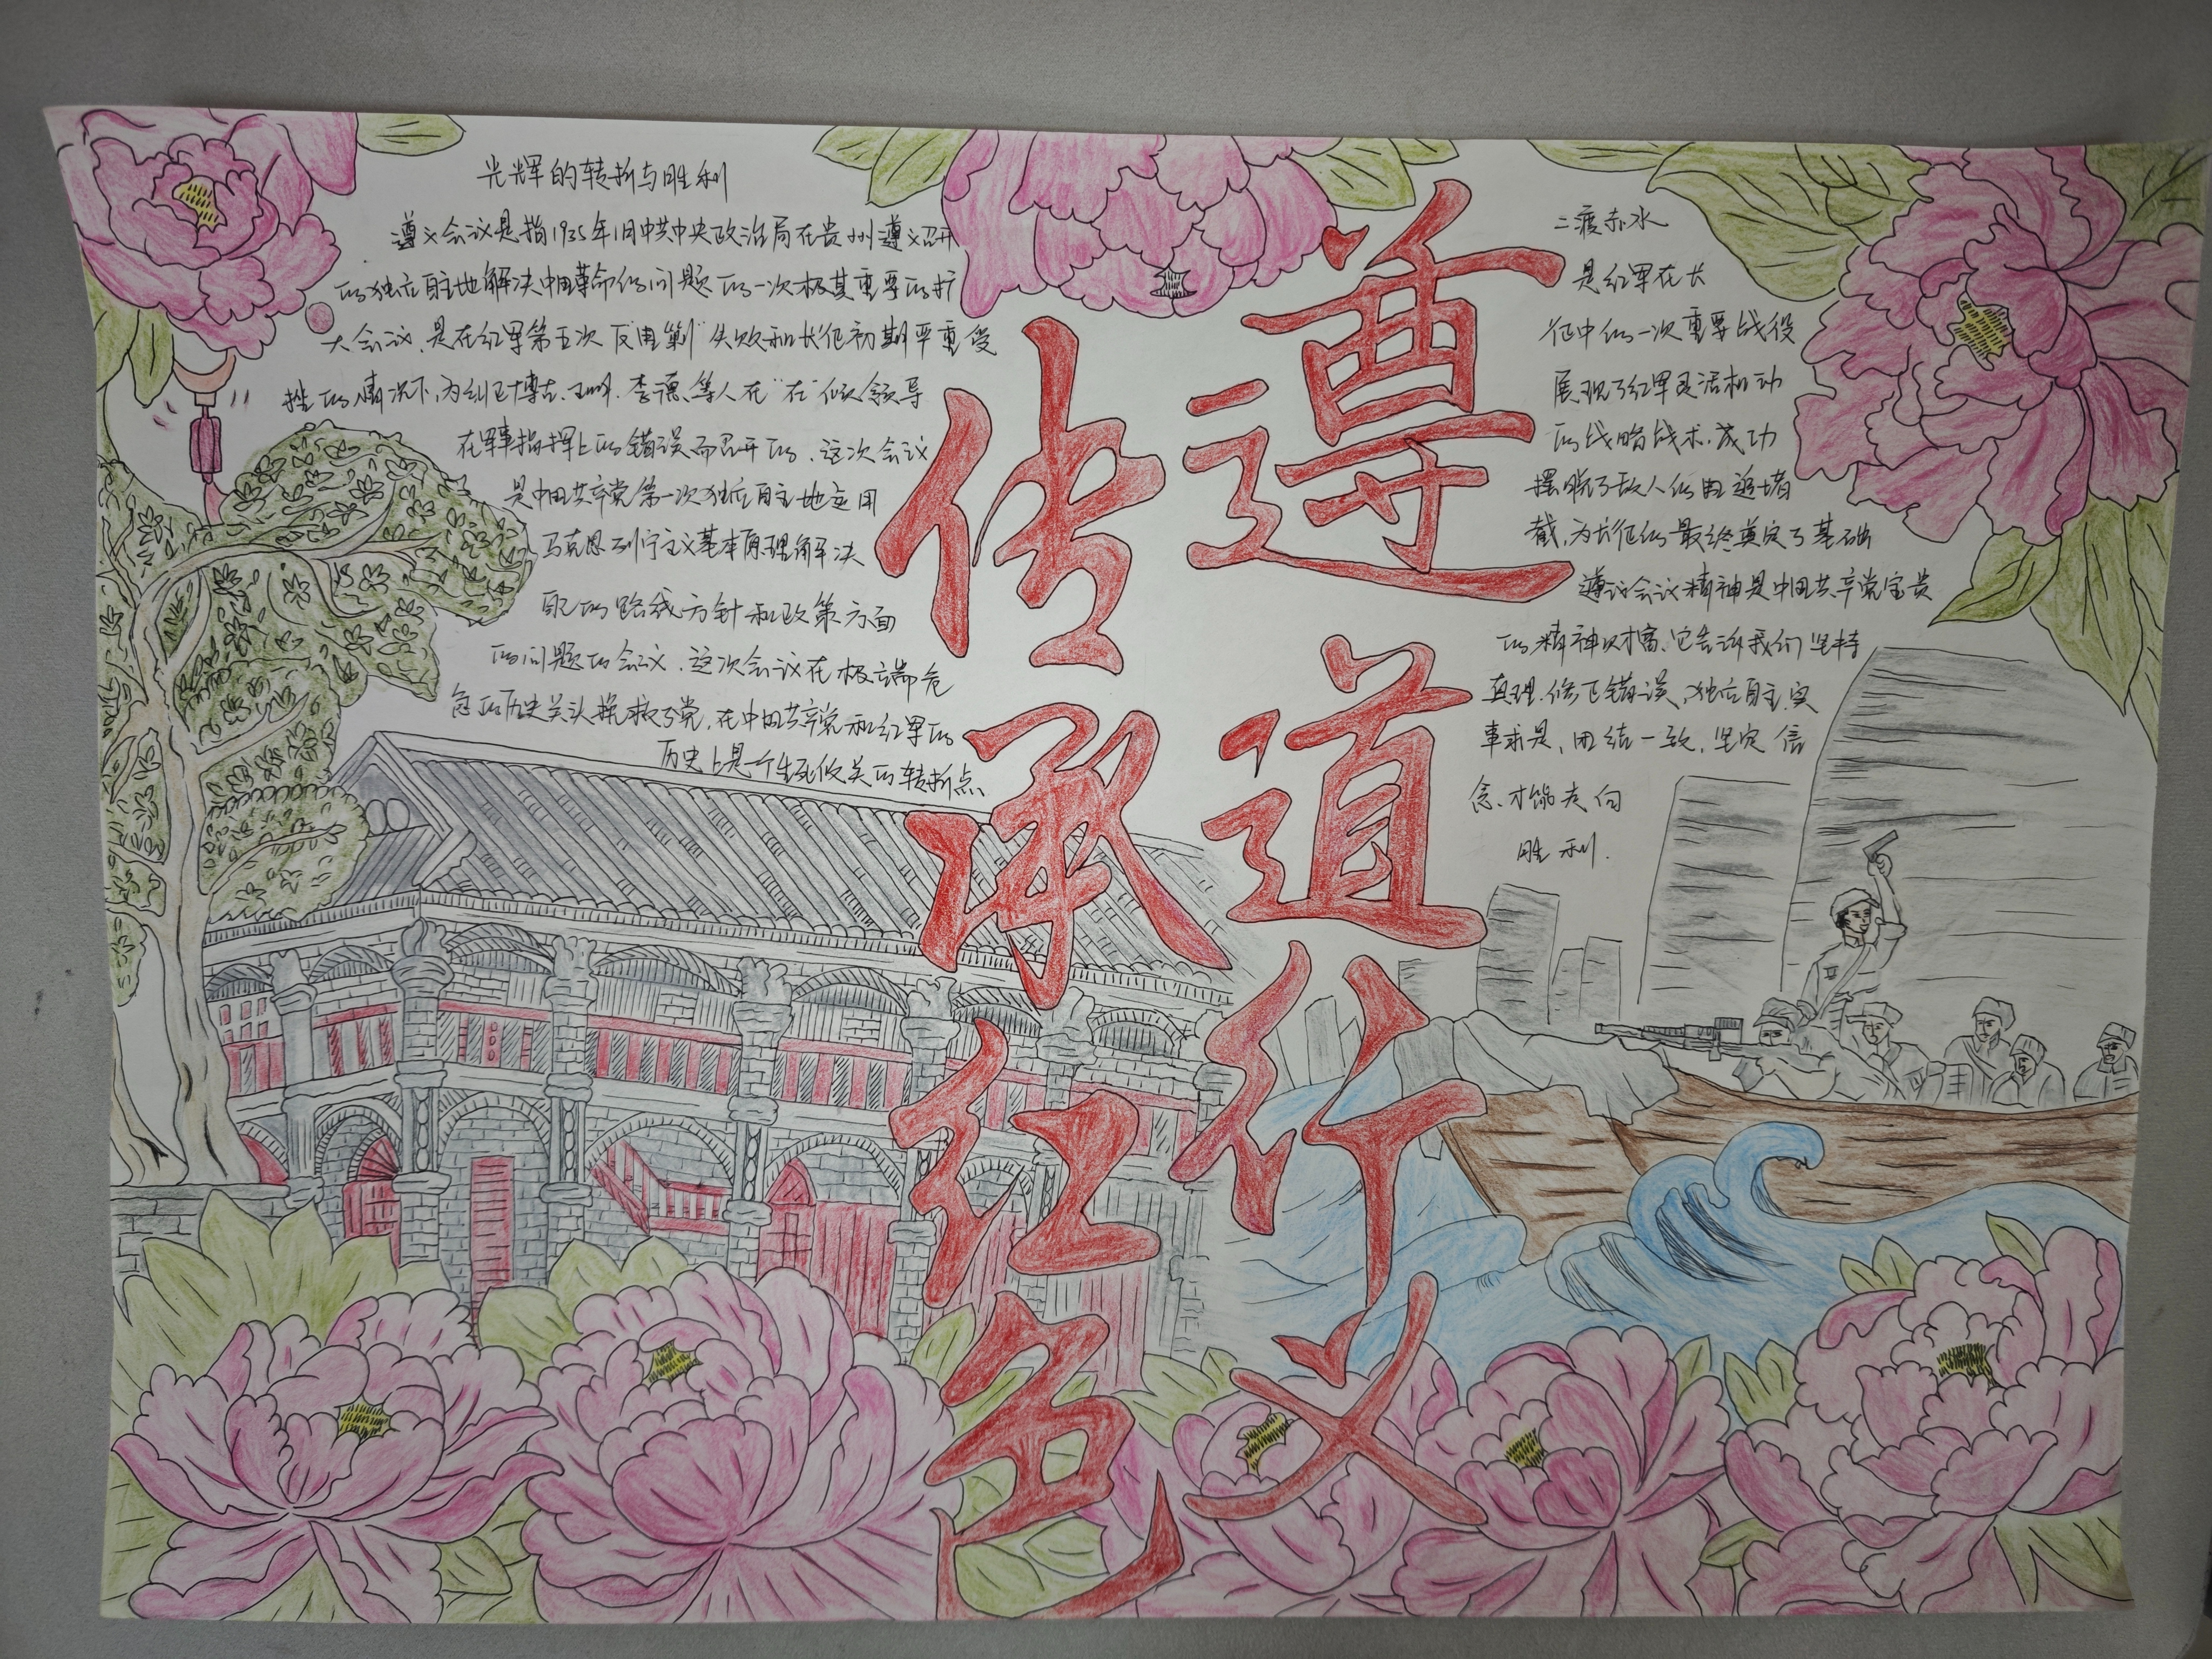 光辉的转折与胜利
遵义会议是指1935年1月中共中央政治局在贵州遵义召开
的独立自主地解决中国革命的问题的一次极其重要的扩
大会议,是在红军第五次反"围剿"失败和长征初期严重受
挫的情况下,为纠正博古、王明、李德、等人在"在"倾领导
在军事指挥上的错误而召开的、这次会议
是中国共产党第一次独立自主地运用
马克思列宁主义基本原理解决
的路线方针和政策方面
的问题的会议、这次会议在极端危
急的历史关头挽救了党,在中国共产党和红军的
历史上是一个生死攸关的转折点
遵道行义
传承红色
二渡赤水
是红军在长
征中的一次重要战役
展现了红军灵活机动
的战略战术、成功
摆脱了敌人的围追堵
截,为长征的最终奠定了基础
遵议会议精神是中国共产党宝贵
的精神财富、它告诉我们坚持
真理、修正错误、独立自主、实
事求是,团结一致,坚定信
念、才能走向
胜利.